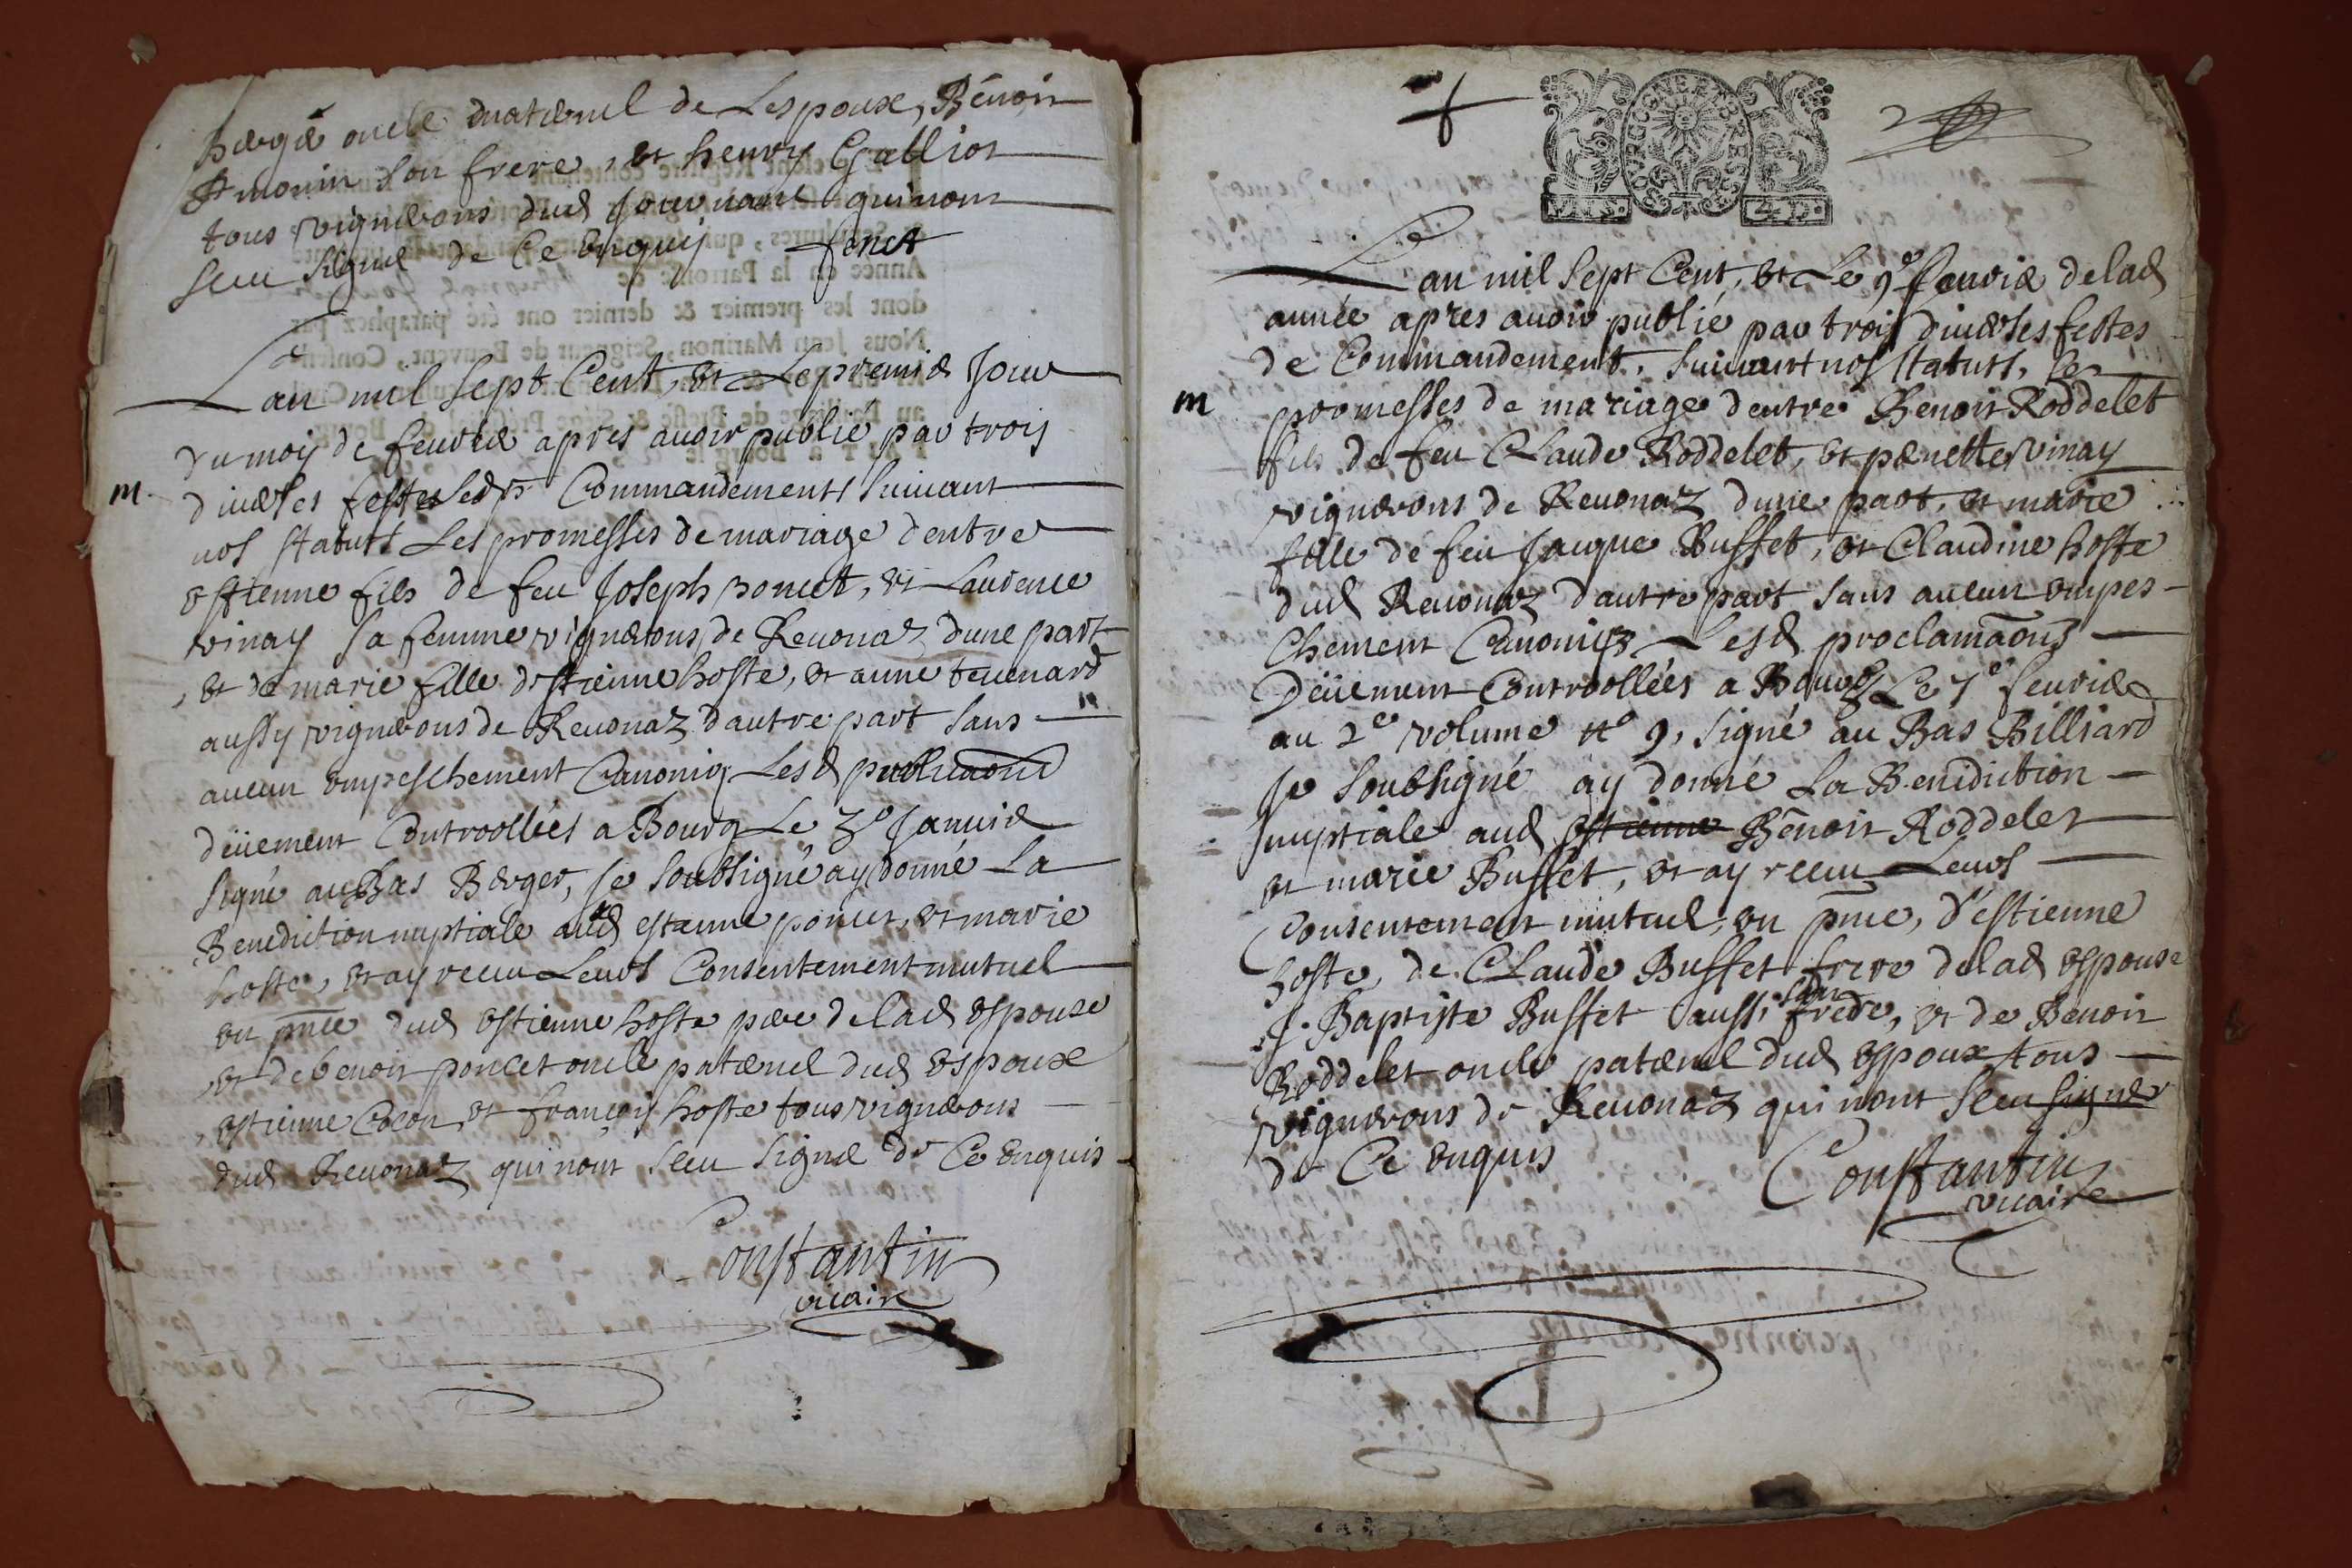 Bergé oncle maternel de Lespoux, Bénoit
St monin son frere, et henry Galliot
tous vignerons dud Journant qui nont
sceu Signé de Ce Enquis fenet
Lan mil Sept Cent, et Le premié Jour
du mois de feuvrié apres auoir publié par trois
m
diuerses festes de Commandements Suiuant
nos statuts Les promesses de mariage dentre
estienne fils de feu Joseph poncet, et Laurence
vinay sa femme vignerons de Reuonaz dune part
, et de marie fille destienne hoste, et anne teuenard
aussy vignerons de Reuonaz dautre part Sans
aucun empeschement Canoniq Lesd publicaons
düement Controollées a Bourg Le 3e Januié
Signé au Bas Berger, Je Soubsigné ay donné La
Benediction nuptiale aud estienne poncet, et marie
hoste, et ay receu Leurs Consentement mutuel
en pnce dud estienne hoste pere de lad espouse
, et de benoit poncet oncle paternel dud espoux
, estienne Cocon, et françois hoste tous vignerons
dud Reuonaz qui nont sceu Signé de Ce Enquis
Constantin
vicaire
GNERIE DE
2
Lan mil Sept Cent, et Le 9e feuvrié de lad
année apres auoir publié par trois diuerses festes
de Commandement, Suiuant nos statuts, les
m
promesses de mariage dentre Benoit Roddelet
fils de feu Claude Roddelet, et pernette vinay
vignerons de Reuonaz dune part, et marie
fille de feu Jacque Buffet, et Claudine hoste
dud Reuonaz dautre part Sans aucun empes-
Chement Canoniq Lesd proclamaons
Düement Controollées a Bourg Le 7e feuvrié
au 2e volume no 9, Signé au Bas Billiard
Je Soubsigné ay donné La Benediction
nuptiale aud estienne Bénoit Roddelet
et marie Buffet, et ay receu Leurs
Consentement mutuel, en pnce, d'estienne
hoste, de Claude Buffet frere de lad espouse
J. Baptiste Buffet aussi son frere, et de Benoit
Roddelet oncle paternel dud espoux tous
vignerons de Reuonaz qui nont sceu signer
de Ce enquis
Constantin
vicaire